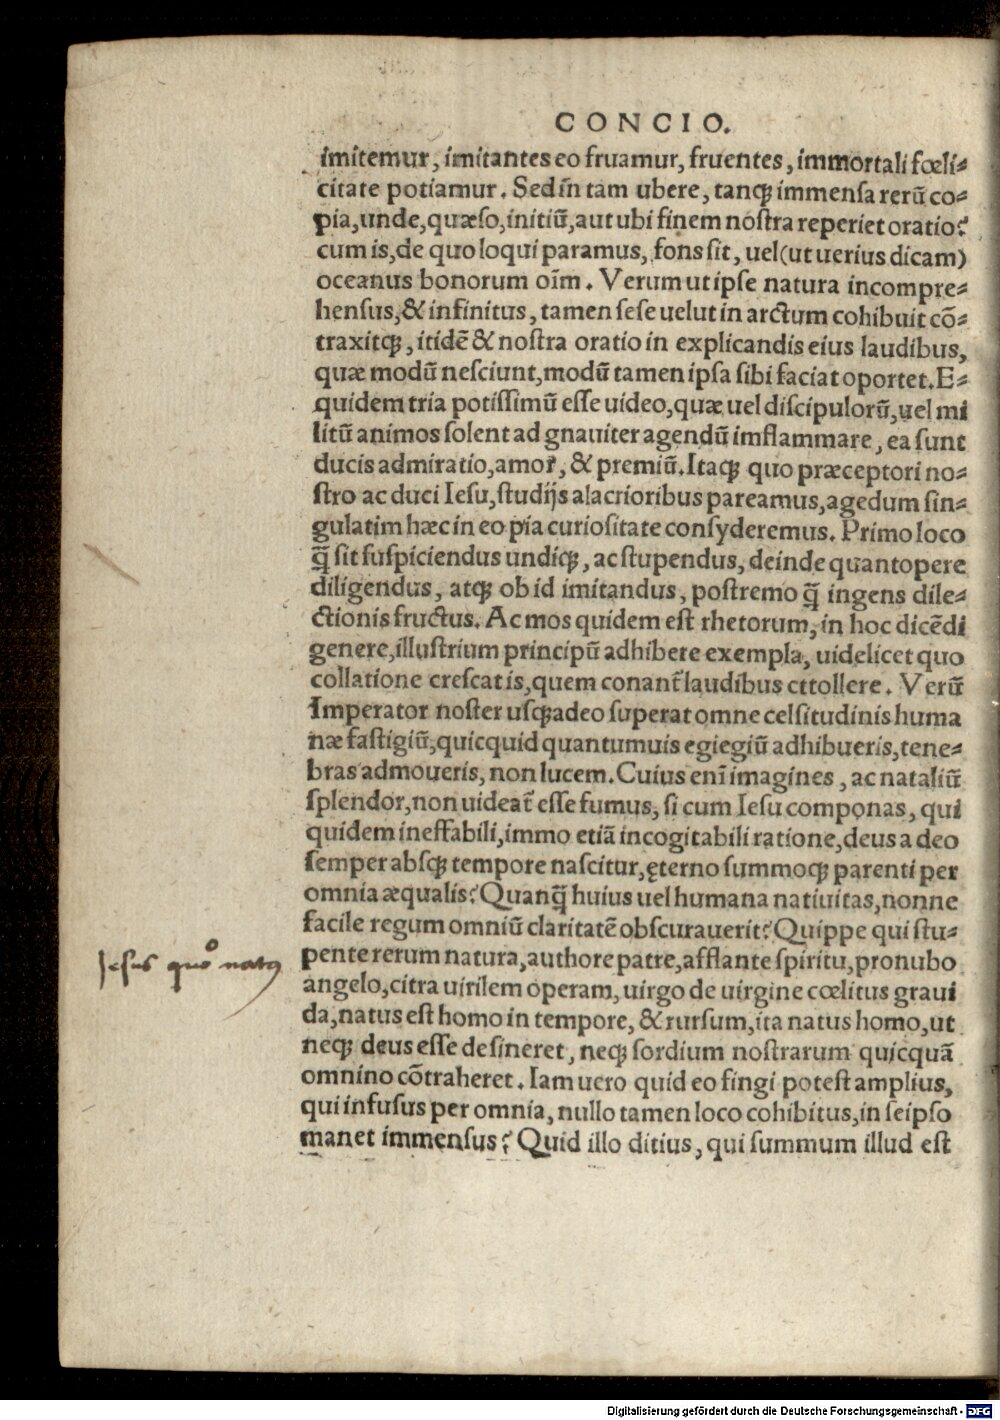 CONCIO.
imitemur, imitantes eo fruamur, fruentes, immortali fœli⸗
citate potiamur. Sed in tam ubere, tanqꝫ immensa rerū co⸗
pia, unde, quæso, initiū, aut ubi finem nostra reperiet oratio?
cum is, de quo loqui paramus, fons sit, uel (ut uerius dicam)
oceanus bonorum oīm. Verum ut ipse natura incompre⸗
hensus, & infinitus, tamen sese uelut in arctum cohibuit cō⸗
traxitqꝫ, itidē & nostra oratio in explicandis eius laudibus,
quæ modū nesciunt, modū tamen ipsa sibi faciat oportet. E⸗
quidem tria potissimū esse uideo, quæ uel discipulorū, uel mi
litū animos solent ad gnauiter agendū imflammare, ea sunt
ducis admiratio, amor, & premiū. Itaqꝫ quo præceptori no⸗
stro ac duci Iesu, studijs alacrioribus pareamus, agedum sin⸗
gulatim hæc in eo pia curiositate consyderemus. Primo loco
q̄ sit suspiciendus undiqꝫ, ac stupendus, deinde quantopere
diligendus, atqꝫ ob id imitandus, postremo q̄ ingens dile⸗
ctionis fructus. Ac mos quidem est rhetorum, in hoc dicēdi
genere, illustrium principū adhibere exempla, uidelicet quo
collatione crescat is, quem conant̃ laudibus cttollere. Verū
Imperator noster usqꝫadeo superat omne celsitudinis huma
næ fastigiū, quicquid quantumuis egiegiū adhibueris, tene⸗
bras admoueris, non lucem. Cuius enī imagines, ac nataliū
splendor, non uideat̃ esse fumus, si cum Iesu componas, qui
quidem ineffabili, immo etiā incogitabili ratione, deus a deo
semper absqꝫ tempore nascitur, ęterno summoqꝫ parenti per
omnia æqualis? Quanq̄ huius uel humana natiuitas, nonne
facile regum omniū claritatē obscurauerit? Quippe qui stu⸗
pente rerum natura, authore patre, afflante spiritu, pronubo
Jesus quo͛ natus
angelo, citra uirilem operam, uirgo de uirgine cœlitus graui
da, natus est homo in tempore, & rursum, ita natus homo, ut
neqꝫ deus esse desineret, neqꝫ sordium nostrarum quicquā
omnino cōtraheret. Iam uero quid eo fingi potest amplius,
qui infusus per omnia, nullo tamen loco cohibitus, in seipso
manet immensus? Quid illo ditius, qui summum illud est
Digitalisierung gefördert durch die Deutsche Forschungsgemeinschaft - DFG